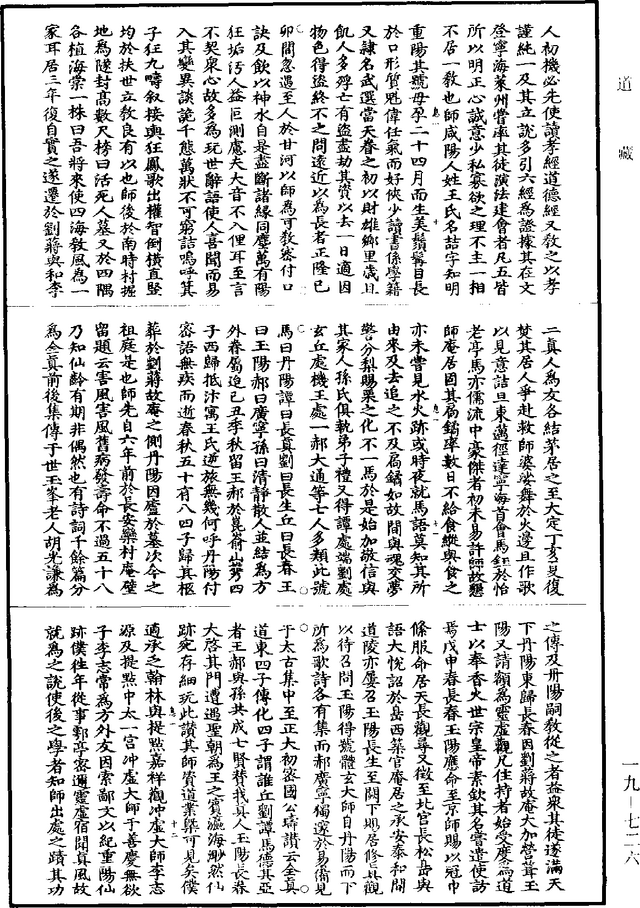 道藏
人初機必先使讀孝經道德經又教之以孝
謹純一及其立說多引六經為證據其在文
登寧海萊州嘗率其徒演法建會者凡五皆
所以明正心誠意少私寡欲之理不主一相
不居一教也師咸陽人姓王氏名喆字知明
重陽其號母孕二十四月而生美鬚髯目長
於口形質魁偉任氣而好俠少讀書係學籍
又隸名武選當天眷之初以財雄鄉里歲且
飢人多殍亡有盜盡劫其資以去一日適因
物色得盜終不之問遠近以為長者正隆己
卯間忽遇至人於甘河以師為可教密付口
訣及飲以神水自是盡斷諸緣同塵萬有陽
狂垢污人益叵測慮夫大音不入俚耳至言
不契衆心故多為玩世辭語使人喜聞而易
入其變異談詭千態萬狀不可窮詰嗚呼箕
子狂九疇敘接輿狂鳳歌出權智倒橫直竪
均於扶世立教良有以也師後於南時村掘
地為隧封高數尺榜曰活死人墓又於四隅
各植海棠一株曰吾將來使四海教風為一
家耳居三年復自實之遂遷於劉蔣與和李
二真人為友各結茅居之至大定丁亥夏復
焚其居人爭赴救師婆娑舞於火邊且作歌
以見意詰旦東邁徑達寧海首會馬鈺於怡
老亭馬亦儒流中豪傑者初未易許師故懇
師庵居固其扃鐍率數日不給食縱與食之
亦未嘗見水火跡或時夜就馬語莫知其所
由來及去追之不及扃鐍如故間與魂交夢
警分梨賜栗之化不一馬於是始加敬信與
其家人孫氏俱執弟子禮又得譚處端劉處
玄丘處機王處一郝大通等七人多類此號
馬曰丹陽譚曰長真劉曰長生丘曰長春王
曰玉陽郝曰廣寧孫曰清靜散人並結為方
外眷屬迨己丑季秋留王郝於崑嵛山第四
子西歸抵汴寓王氏逆旅無幾何呼丹陽付
密語無疾而逝春秋五十有八四子歸其柩
葬於劉蔣故庵之側丹陽因廬於墓次今之
祖庭是也師先自六年前於長安欒村庵壁
留題云害風害風舊病發壽命不過五十八
乃知仙齡有期非偶然也有詩詞千餘篇分
為全真前後集傳于世玉峯老人胡光謙為
之傳及丹陽嗣教從之者益衆其徒遂滿天
下丹陽東歸長春因劉蔣故庵大加營葺玉
陽又請額為靈虛觀凡住持者始受度為道
士以奉香火世宗皇帝素欽其名嘗遣使訪
焉戊申春長春玉陽應命至京師賜以冠巾
條服命居天長觀尋又徵至此官長松島與
語大悅詔於岳西築官庵居之承安泰和間
道陵亦屢召玉陽長生至闕下賜居修真觀
以待召問玉陽得號體玄大師自丹陽而下
所為歌詩各有集而郝廣寧獨邃於易備見
于太古集中至正大初密國公璹讚云全真
道東四子傳化四子謂誰丘劉譚馬德其亞
者王郝與孫共成七賢贊我真人玉陽長春
大啓其門遭遇聖朝為王之賓瀛海渺然仙
跡宛存細玩此讚其師資道業槩可見矣僕
適承乏翰林與提點嘉祥觀冲虛大師李志
源及提點中太一宮冲虛大師于善慶無欲
子李志常為方外友因索鄙文以紀重陽仙
跡僕往年從事鄠亭密邇靈虛宿聞真風故
就為之說使後之學者知師出處之蹟其功
一九－七二六